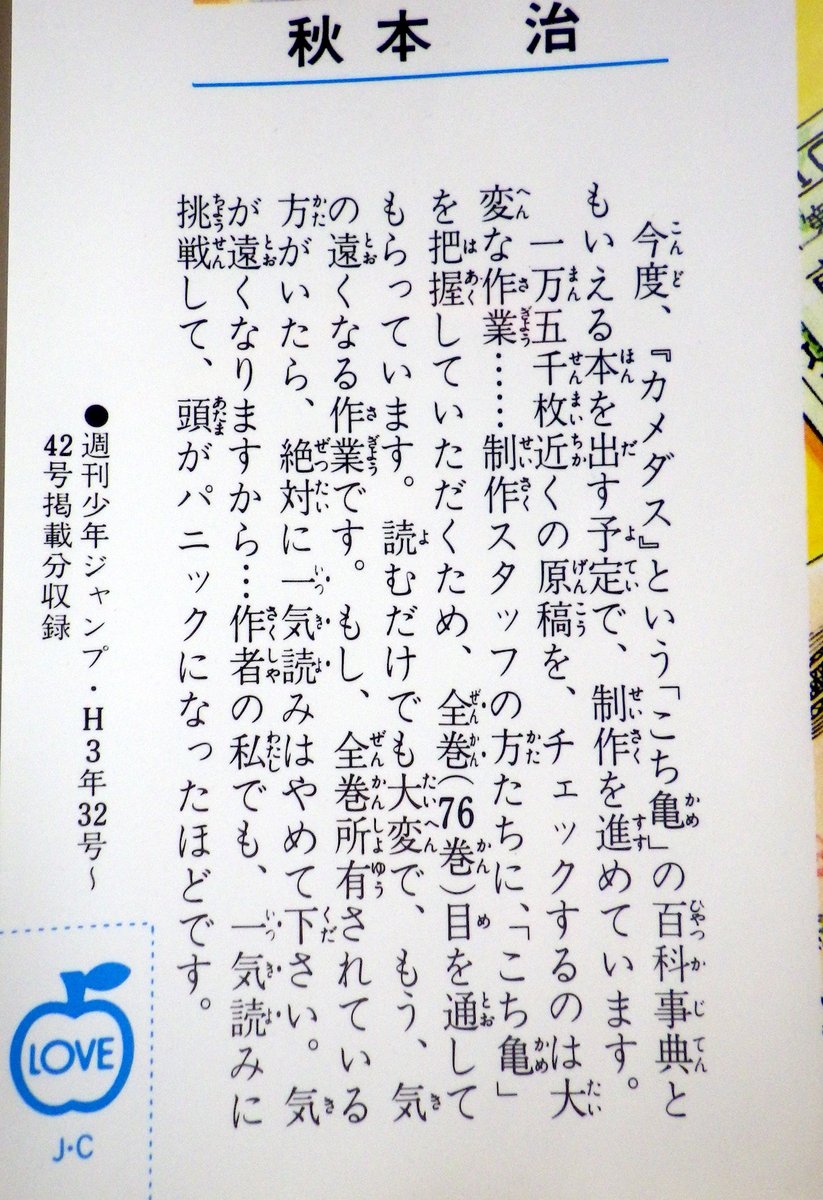 秋本 治
今度、『カメダス』という「こち亀」の百科事典と
もいえる本を出す予定で、制作を進めています。
一万五千枚近くの原稿を、チェックするのは大
変な作業……制作スタッフの方たちに、「こち亀」
を把握していただくため、全巻(76巻)目を通して
もらっています。読むだけでも大変で、もう、気
の遠くなる作業です。もし、全巻所有されている
方がいたら、絶対に一気読みはやめて下さい。気
が遠くなりますから…作者の私でも、一気読みに
挑戦して、頭がパニックになったほどです。
●週刊少年ジャンプ・H3年32号〜
42号掲載分収録
LOVE
J・C